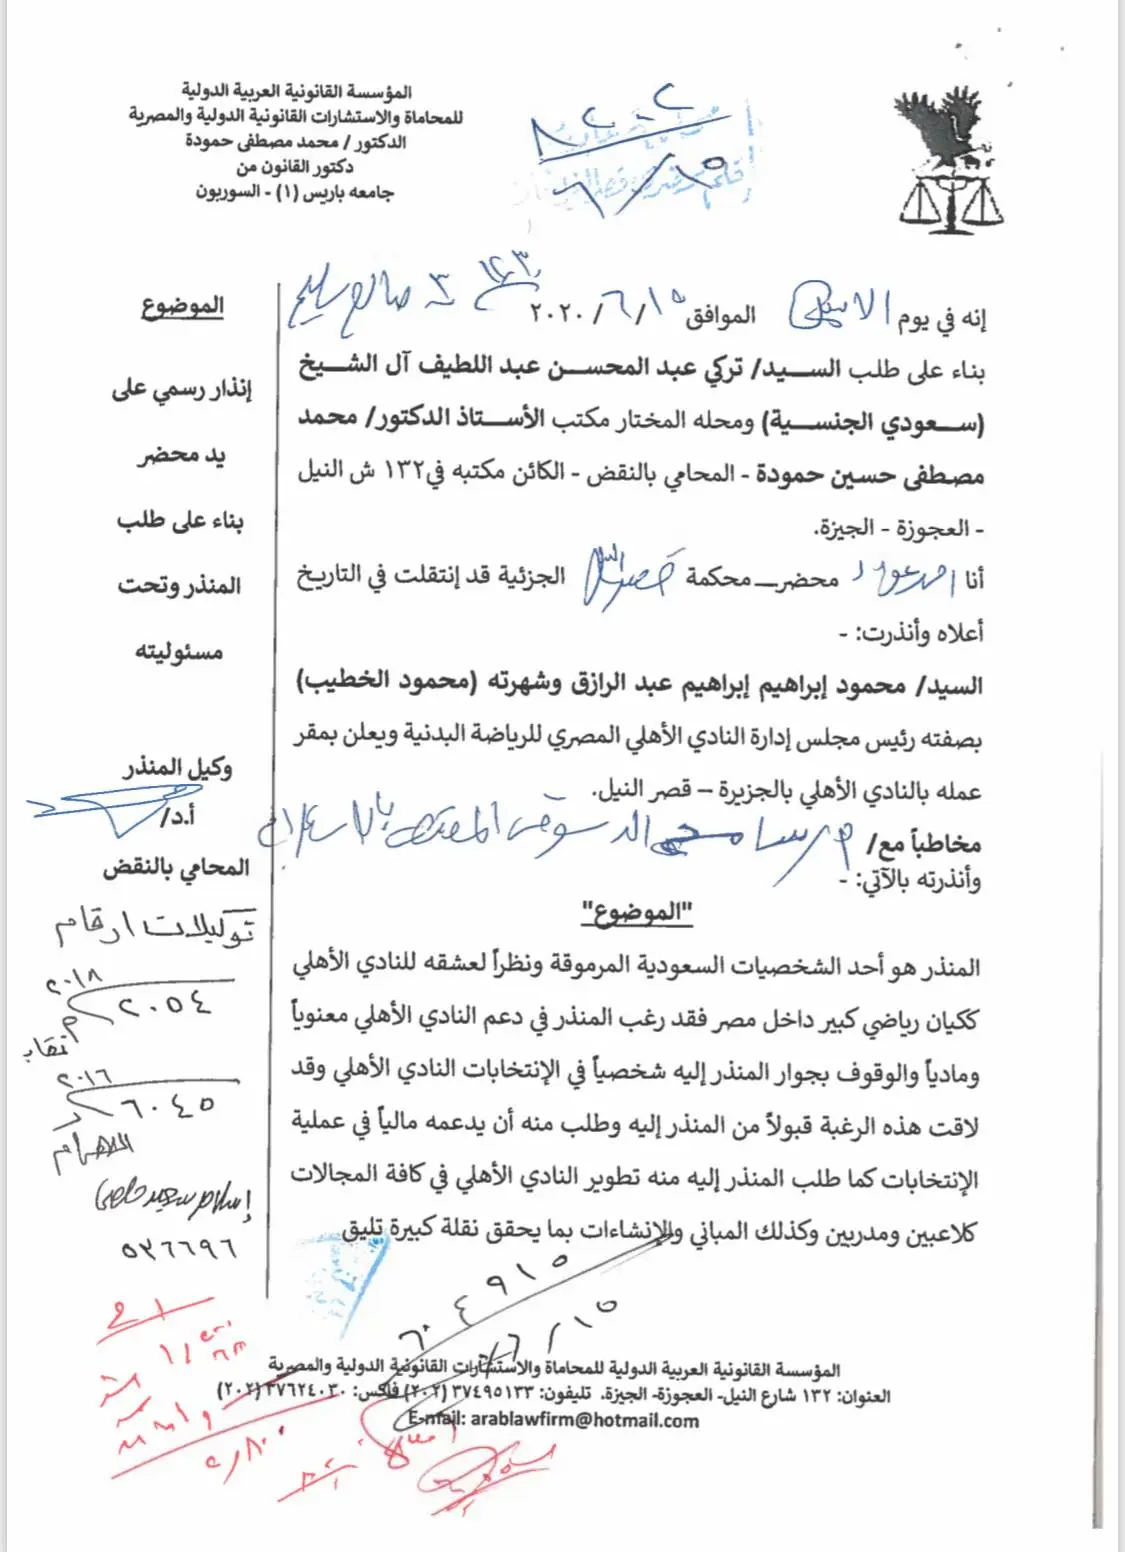 المؤسسة القانونية العربية الدولية
للمحاماة والاستشارات القانونية الدولية والمصرية
الدكتور / محمد مصطفى حمودة
دكتور القانون من
جامعه باريس (١) - السوربون
٦/١٥
إنه في يوم الاثنين الموافق ١٥/٦/٢٠٢٠
بناء على طلب السيد/ تركي عبد المحسن عبد اللطيف آل الشيخ
(سعودي الجنسية) ومحله المختار مكتب الأستاذ الدكتور/ محمد
مصطفى حسين حمودة - المحامي بالنقض - الكائن مكتبه في١٣٢ ش النيل
- العجوزة - الجيزة.
أنا محضر محكمة قصر النيل الجزئية قد إنتقلت في التاريخ
أعلاه وأنذرت: -
السيد/ محمود إبراهيم إبراهيم عبد الرازق وشهرته (محمود الخطيب)
بصفته رئيس مجلس إدارة النادي الأهلي المصري للرياضة البدنية ويعلن بمقر
عمله بالنادي الأهلي بالجزيرة – قصر النيل.
مخاطباً مع/
وأنذرته بالآتي: -
"الموضوع"
المنذر هو أحد الشخصيات السعودية المرموقة ونظراً لعشقه للنادي الأهلي
ككيان رياضي كبير داخل مصر فقد رغب المنذر في دعم النادي الأهلي معنوياً
ومادياً والوقوف بجوار المنذر إليه شخصياً في الإنتخابات النادي الأهلي وقد
لاقت هذه الرغبة قبولاً من المنذر إليه وطلب منه أن يدعمه مالياً في عملية
الإنتخابات كما طلب المنذر إليه منه تطوير النادي الأهلي في كافة المجالات
كلاعبين ومدربين وكذلك المباني والإنشاءات بما يحقق نقلة كبيرة تليق
الموضوع
إنذار رسمي على
يد محضر
بناء على طلب
المنذر وتحت
مسئوليته
وكيل المنذر
أ.د/
المحامي بالنقض
توكيلات ارقام
٢٠١٨
٢٠٥٤
٢٠١٦
٦٠٤٥
الاهرام
إسلام سعيد حلمى
٥٣٦٦٩٦
٦٠٤٩١٥
٦/١٥
المؤسسة القانونية العربية الدولية للمحاماة والاستشارات القانونية الدولية والمصرية
العنوان: ١٣٢ شارع النيل- العجوزة- الجيزة. تليفون: ٣٧٤٩٥١٣٣ (٢٠٢) فاكس: ٣٧٦٢٤٠٣٠ (٢٠٢)
E-mail: arablawfirm@hotmail.com